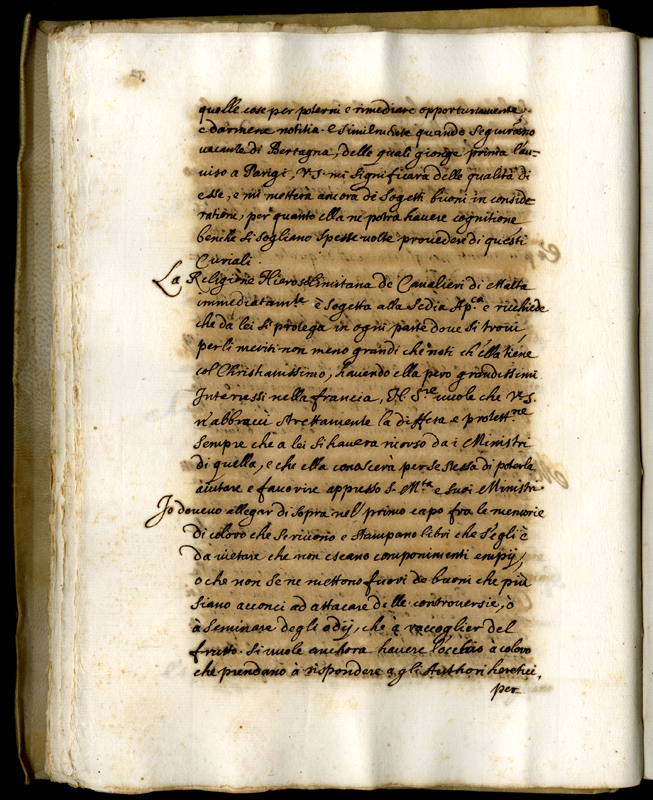 quelle cose per poterui e rimediare opportunamente,
e darmene notitia. E similmente quando seguirāno
vacante di Bertagna, delle quali gionge prima l'au-
uiso a Parigi, V.S. mi significarà delle qualità di
esse, e mi metterà ancora de sogetti buoni in conside-
ratione, per quanto ella ne potrà hauere cognitione
benche si sogliano spesse uolte prouedere di questi
Curiali.
La Religione Hierosolimitana de Caualieri di Malta
immediatamte è sogetta alla Sedia Ap.ca e richiede
che da lei si protega in ogni parte doue si troui,
per li meriti non meno grandi che noti ch'ella tiene
col Christianissimo, hauendo ella però grandissimi
Interessi nella francia, N. Sre uuole che V.S.
n'abbracci strettamente la diffesa e protettne
sempre che a lei si hauerà ricorso da i Ministri
di quella, e che ella conoscerà per se stessa di poterla
aiutare e fauorire appresso S. Mta e suoi Ministri.
Io doueuo allegar di sopra nel primo capo fra le memorie
di coloro che scriuono e stampano libri che s'egli è
da uietare che non escano componimenti empij,
o che non se ne mettono fuori de buoni che più
siano acconci ad attacare delle controuersie, ò
à seminare degli odij, che à raccoglier del
frutto. Si uuole anchora hauere l'occhio à coloro
che prendano à rispondere a gli Authori heretici,
per